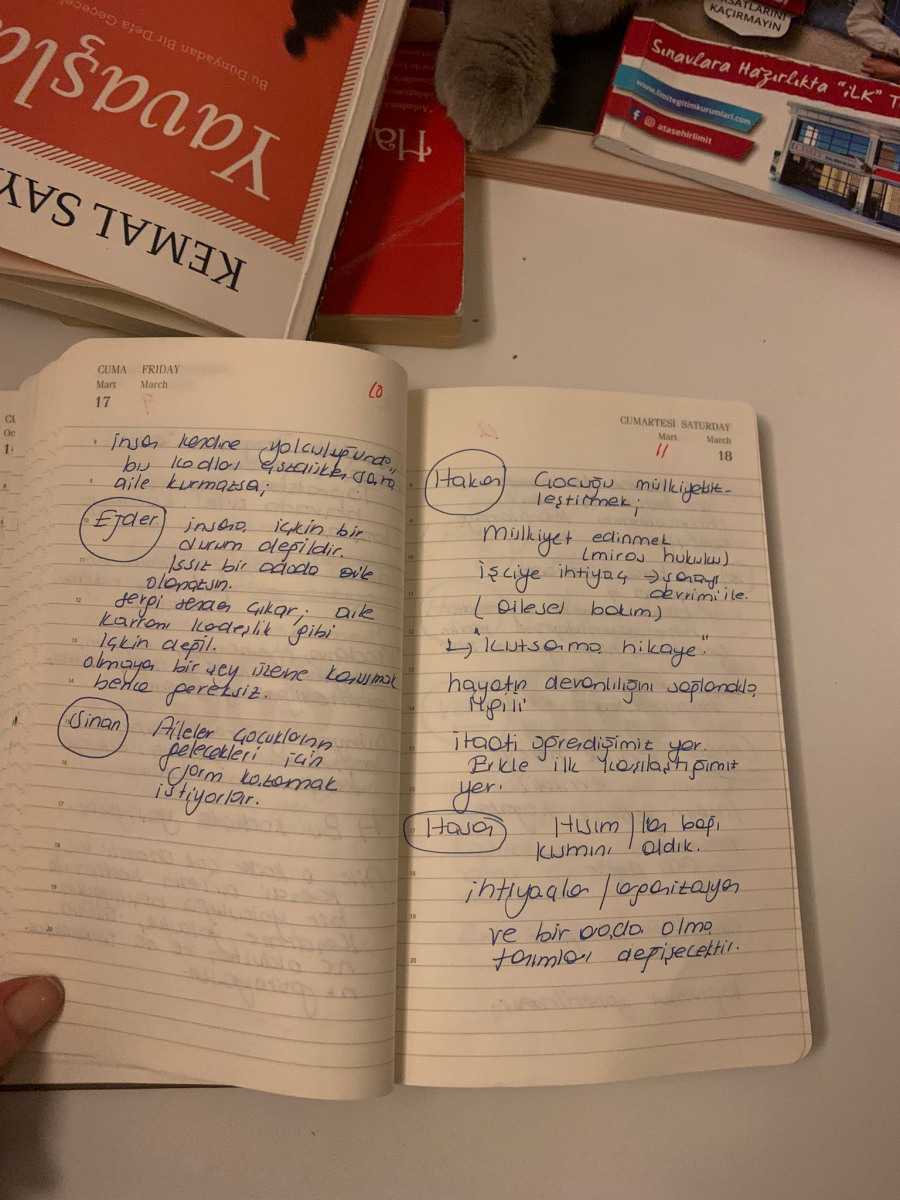 Yavaşla
Bu Dünyadan Bir Defa Geçecek
KEMAL SAY
Ha
FIRSATLARINI
KAÇIRMAYIN
Sınavlara Hazırlıkta "İLK" T
www.limitegitimkurumlari.com
atasehirlimit
CUMA FRIDAY
Mart March
17
10
insan kendine yolculuğunda,
bu kodları
aile kurmazsa;
Ejder insana içkin bir
durum değildir.
Issız bir adada aile
olamazsın.
sergi çıkar; aile
kavramı kadeşlik gibi
içkin değil.
olmayan bir şey üzerine konuşmak
bence gereksiz.
Sinan Aileler çocukların
gelecekleri için
form kazanmak
istiyorlar.
CUMARTESİ SATURDAY
Mart March
11 18
Hakan Çocuğu mülkiyetit-
leştirmek;
Mülkiyet edinmek
(miras hukuku)
İşçiye ihtiyaç → sanayi
devrimi ile.
(ailesel bakım)
↳ "kutsama hikaye"
hayatın devamlılığını sağlamakla
ilgili
itaati öğrendiğimiz yer.
Erkle ilk karşılaştığımız
yer.
Hasan Hısım / kan bağı
kısmını aldık.
ihtiyaçlar / organizasyon
ve bir arada olma
tanımları değişecektir.